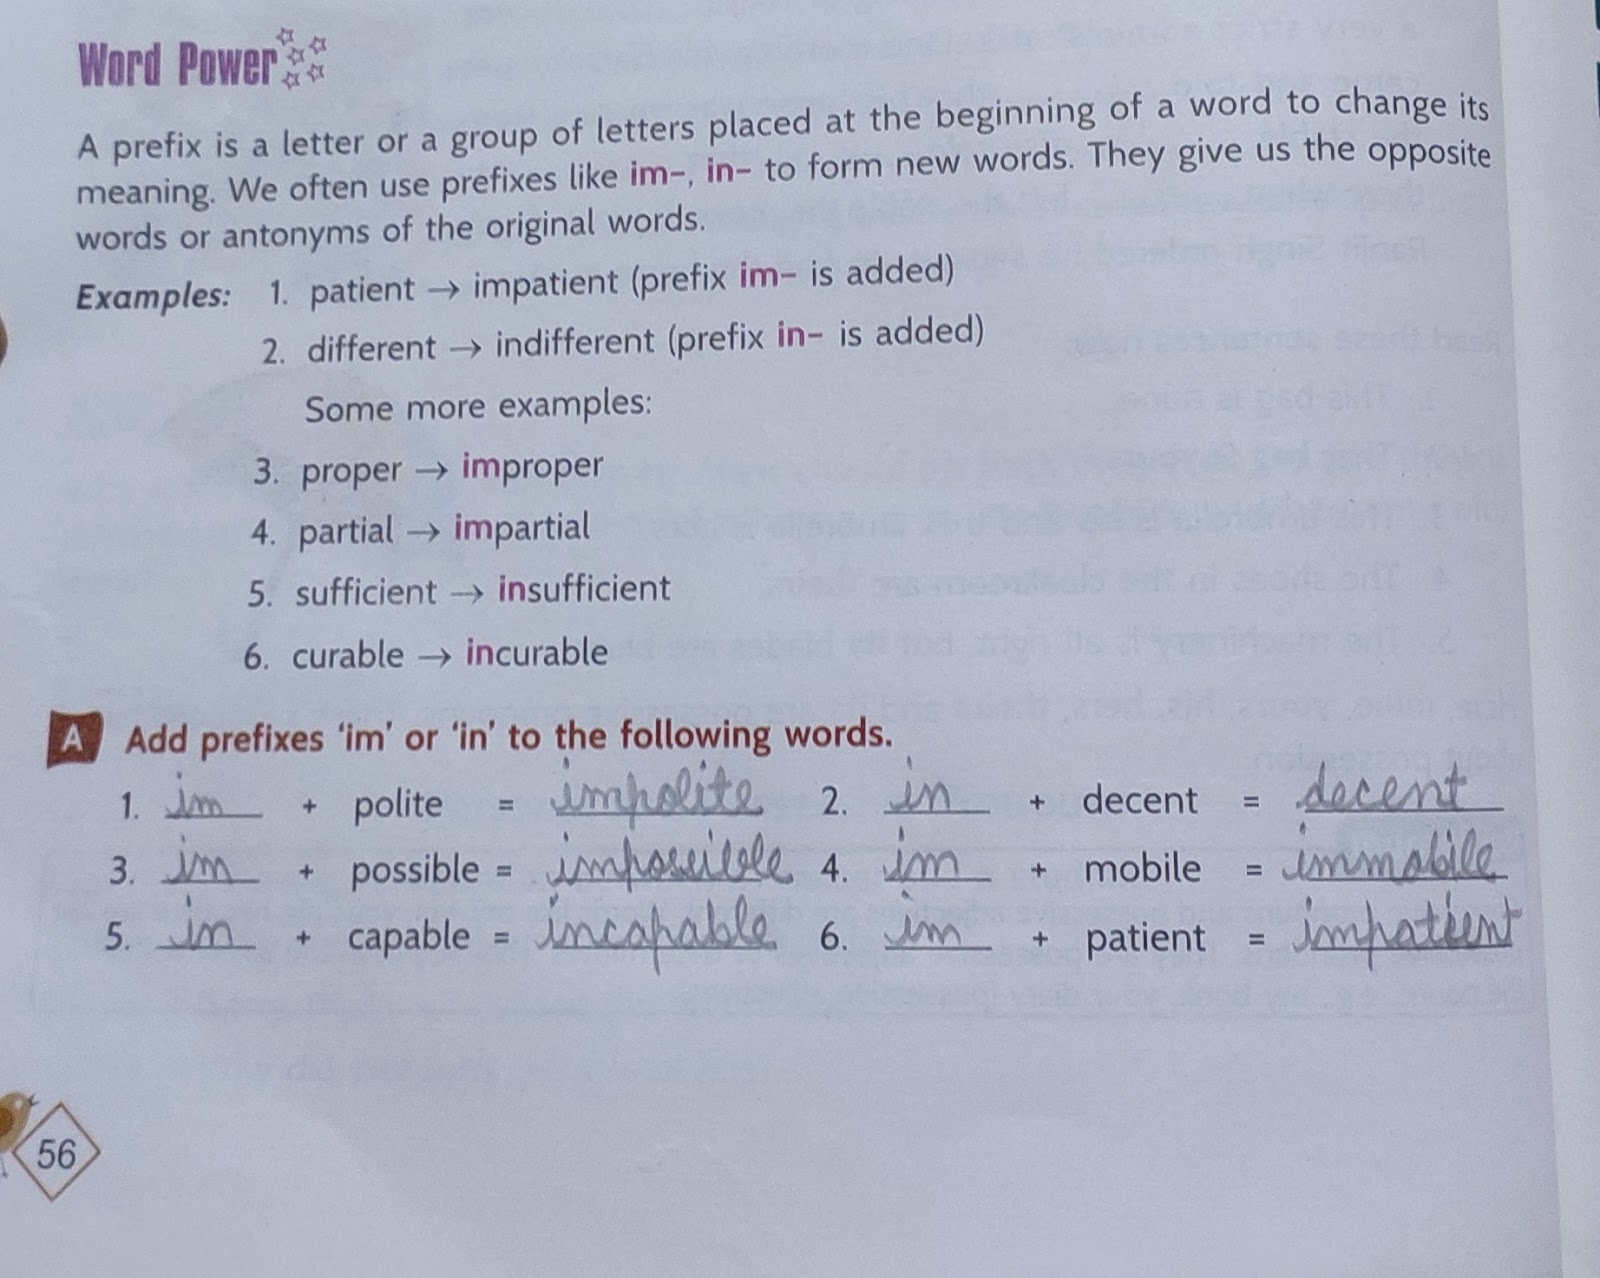 Word Power
A prefix is a letter or a group of letters placed at the beginning of a word to change its
meaning. We often use prefixes like im-, in- to form new words. They give us the opposite
words or antonyms of the original words.
Examples: 1. patient → impatient (prefix im- is added)
2. different → indifferent (prefix in- is added)
Some more examples:
3. proper → improper
4. partial → impartial
5. sufficient → insufficient
6. curable → incurable
A Add prefixes 'im' or 'in' to the following words.
1. im + polite = impolite 2. in + decent = decent
3. im + possible = impossible 4. im + mobile = immobile
5. in + capable = incapable 6. im + patient = impatient
56